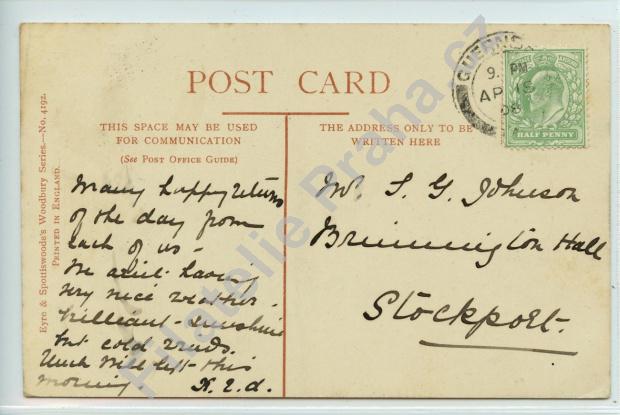 POST CARD
THIS SPACE MAY BE USED
FOR COMMUNICATION
(See Post Office Guide)
THE ADDRESS ONLY TO BE
WRITTEN HERE
Eyre & Spottiswoode's Woodbury Series.—No. 4192.
Printed in England.
Many happy returns
of the day from
each of us –
We
very nice weather.
brilliant sunshine
but cold winds.
Uncle Will left this
morning
Mr. S. G. Johnson
Brinnington Hall
Stockport.
GUERNS
9. PM
AP 15
08
HALF PENNY
Filatelie Praha.cz